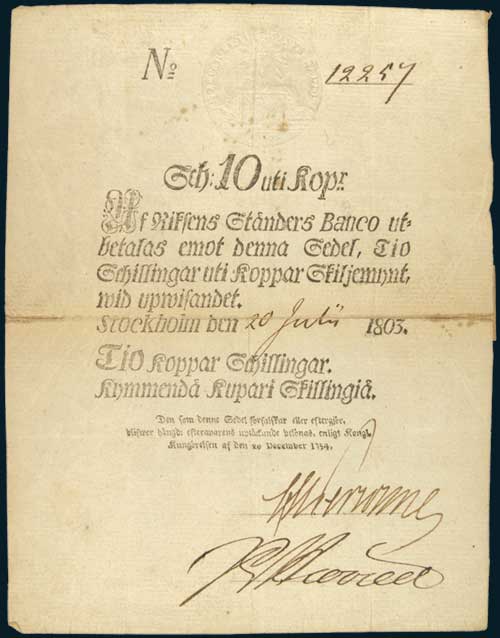 No 12257
Sch: 10 uti Kopr.
Af Riksens Ständers Banco ut-
betalas emot denna Sedel, Tio
Schillingar uti Koppar Skiljemynt,
wid upwisandet.
Stockholm den 20 Julii 1803.
Tio Koppar Schillingar.
Kymmendä Kupari Skillingiä.
Den som denna Sedel förfalskar eller eftergör,
blifwer hängd; efterawarens uptäckande belönas, enligt Kongl.
Kungörelsen af den 20 December 1754.